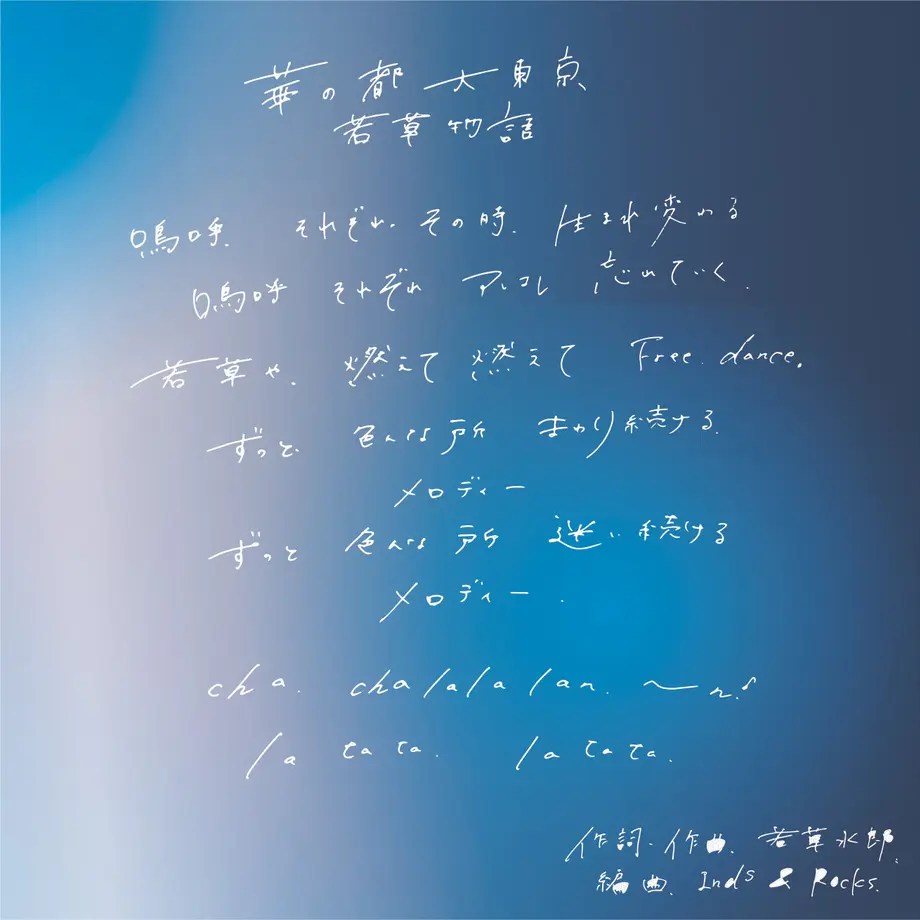 華の都 大東京
若草物語
嗚呼. それぞれ. その時. 生まれ変わる
嗚呼 それぞれ アレコレ 忘れていく.
若草や. 燃えて 燃えて Free. dance.
ずっと 色んな所 まわり続ける.
メロディー
ずっと 色んな所 迷い続ける
メロディー .
cha. chalala lan. 〜n.♪
la tata. la tata.
作詞・作曲. 若草水郎.
編曲. Inds & Rocks.